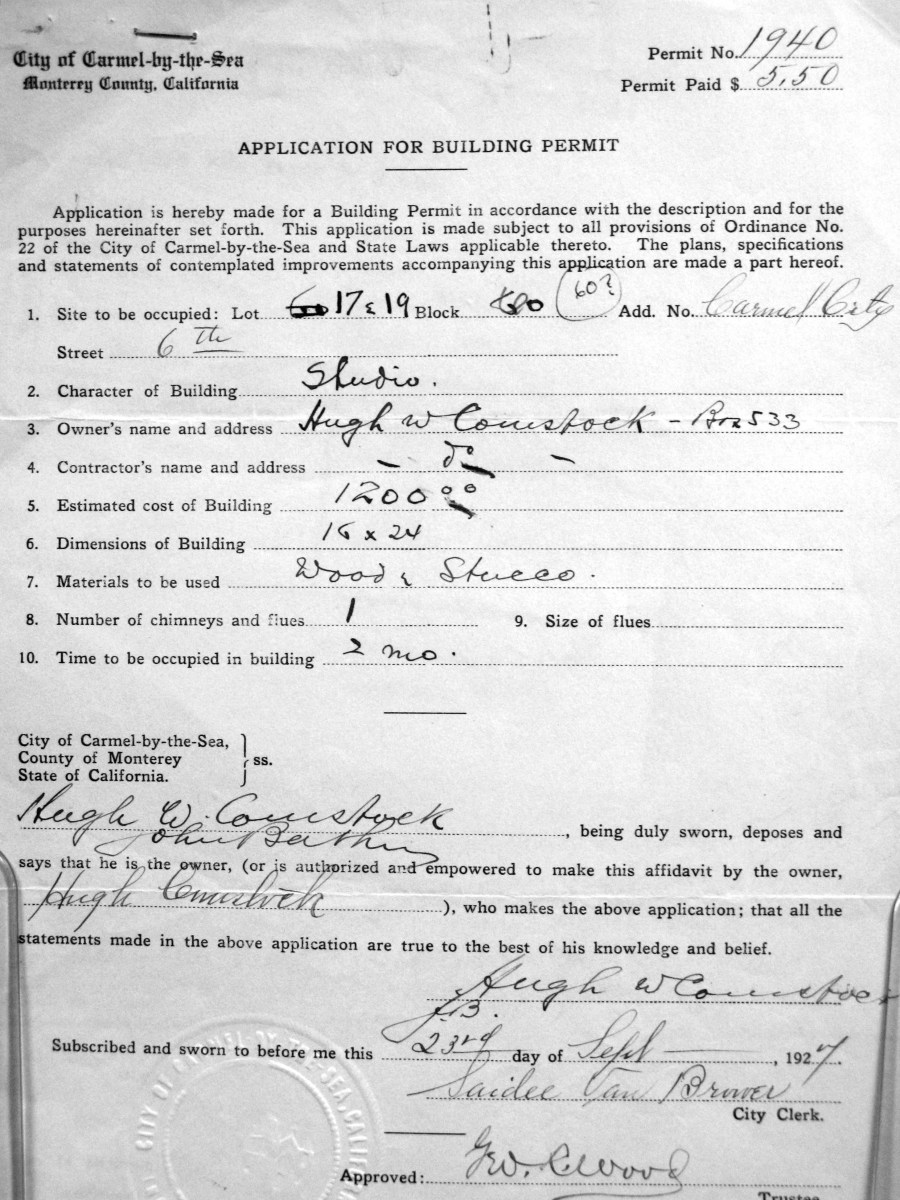 City of Carmel-by-the-Sea
Monterey County, California
Permit No. 1940
Permit Paid $ 5.50
APPLICATION FOR BUILDING PERMIT
Application is hereby made for a Building Permit in accordance with the description and for the
purposes hereinafter set forth. This application is made subject to all provisions of Ordinance No.
22 of the City of Carmel-by-the-Sea and State Laws applicable thereto. The plans, specifications
and statements of contemplated improvements accompanying this application are made a part hereof.
1. Site to be occupied: Lot 17 & 19 Block (60?) Add. No. Carmel City
Street 6th
2. Character of Building Studio.
3. Owner's name and address Hugh W Comstock - Box 533
4. Contractor's name and address - do -
5. Estimated cost of Building 1200 00
6. Dimensions of Building 16 x 24
7. Materials to be used Wood & Stucco.
8. Number of chimneys and flues 1 9. Size of flues
10. Time to be occupied in building 2 mo.
City of Carmel-by-the-Sea,
County of Monterey } ss.
State of California.
Hugh W. Comstock, being duly sworn, deposes and
John
says that he is the owner, (or is authorized and empowered to make this affidavit by the owner,
Hugh Comstock), who makes the above application; that all the
statements made in the above application are true to the best of his knowledge and belief.
Hugh W Comstock
J.B.
Subscribed and sworn to before me this 23rd day of Sept, 1927.
Saidee Van Brower
City Clerk.
Approved: Geo. C Wood
Trustee